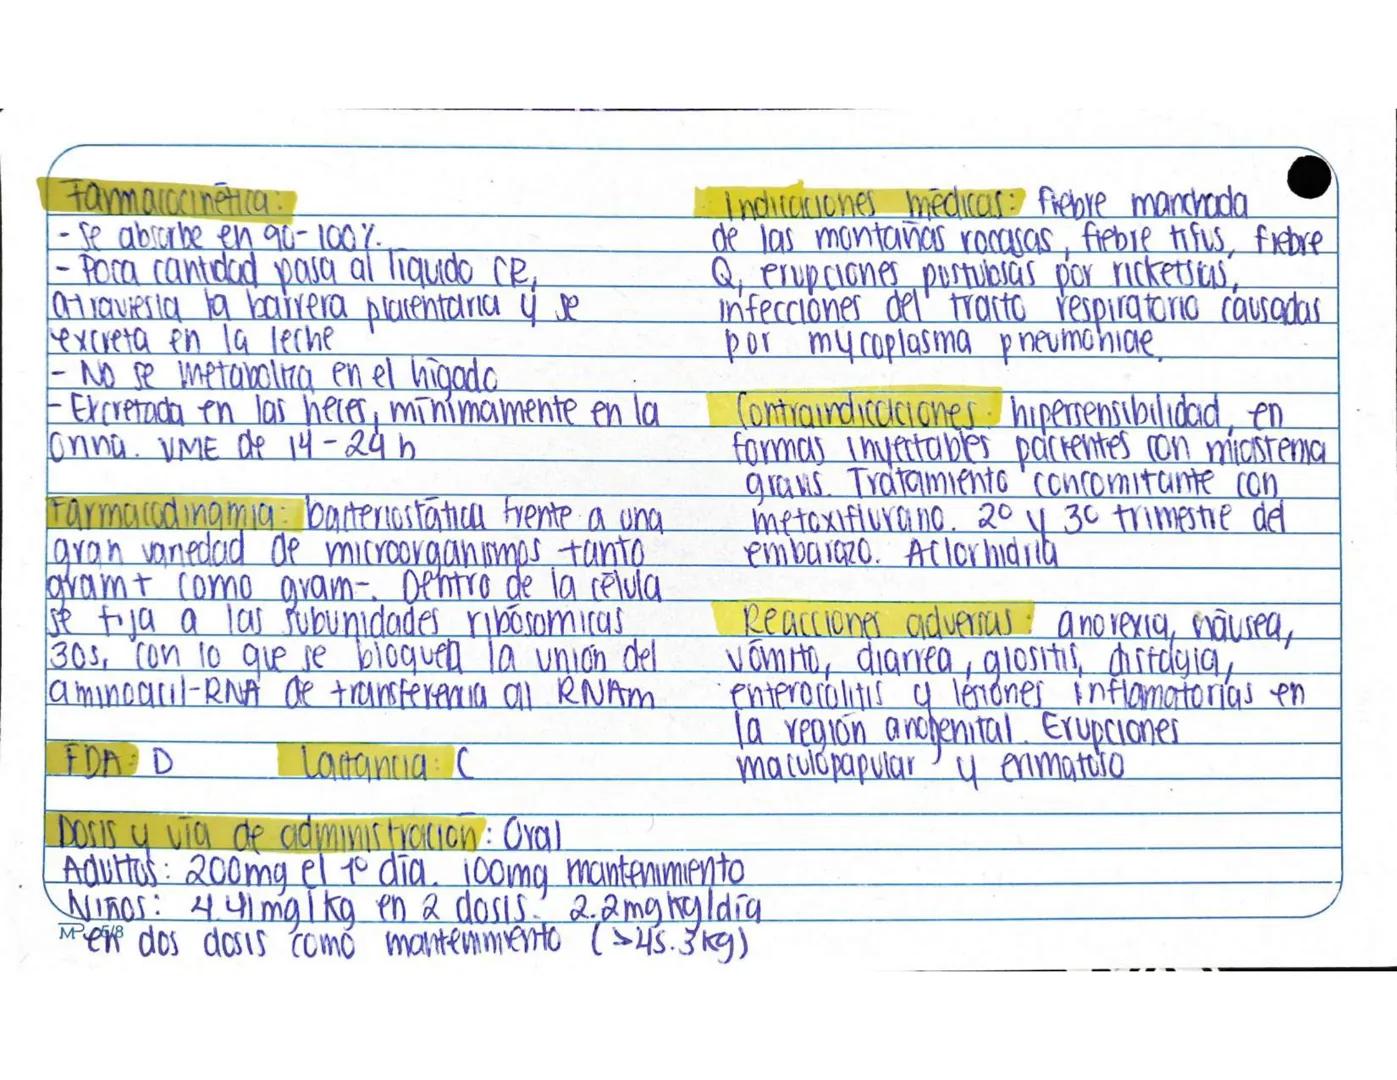 Farmacocinética:
- Se absorbe en 90-100%.
- Poca cantidad pasa al líquido CR,
atraviesa la barrera placentaria y se
excreta en la leche
- No se metaboliza en el hígado
- Excretada en las heces, mínimamente en la
orina. VME de 14-24 h
Farmacodinamia: bacteriostática frente a una
gran variedad de microorganismos tanto
gram+ como gram-. Dentro de la célula
se fija a las subunidades ribosómicas
30s, con lo que se bloquea la unión del
aminoacil-RNA de transferencia al RNAm
FDA: D Lactancia: C
Dosis y vía de administración: Oral
Adultos: 200mg el 1º día. 100mg mantenimiento
Niños: 4.41mg/kg en 2 dosis. 2.2mg/kg/día
en dos dosis como mantenimiento (>45.3kg)
Indicaciones médicas: fiebre manchada
de las montañas rocasas, fiebre tifus, fiebre
Q, erupciones pustulosas por ricketsias,
infecciones del tracto respiratorio causadas
por mycoplasma pneumoniae.
Contraindicaciones: hipersensibilidad, en
formas inyectables pacientes con miastenia
gravis. Tratamiento concomitante con
metoxiflurano. 2º y 3º trimestre del
embarazo. Aclorhidria
Reacciones adversas: anorexia, náusea,
vómito, diarrea, glositis, disfagia,
enterocolitis y lesiones inflamatorias en
la región anogenital. Erupciones
maculopapular y erimatoso